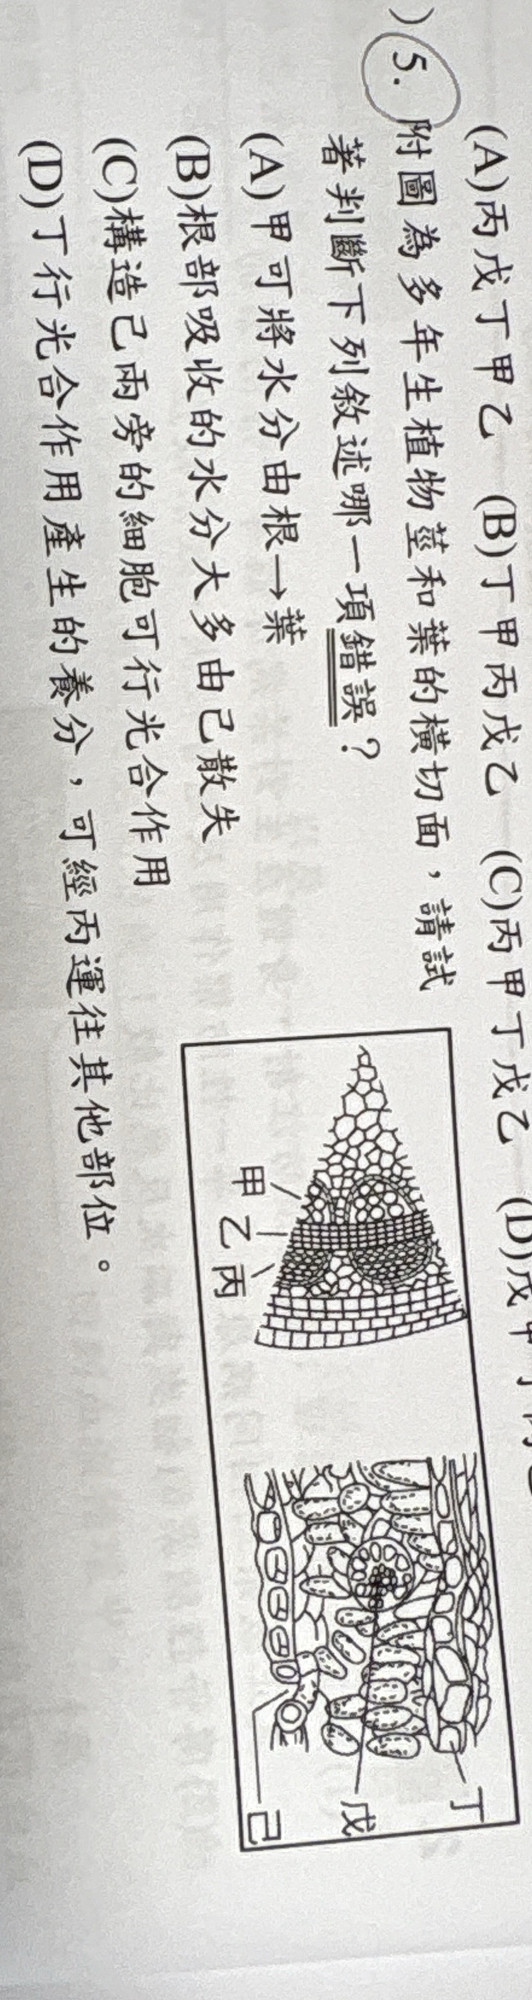 (A)丙戊丁甲乙 (B)丁甲丙戊乙 (C)丙甲丁戊乙 (D)戊甲丁丙
)5. 附圖為多年生植物莖和葉的橫切面，請試
著判斷下列敘述哪一項錯誤？
(A)甲可將水分由根→葉
(B)根部吸收的水分大多由己散失
(C)構造己兩旁的細胞可行光合作用
(D)丁行光合作用產生的養分，可經丙運往其他部位。
甲
乙
丙
丁
戊
己